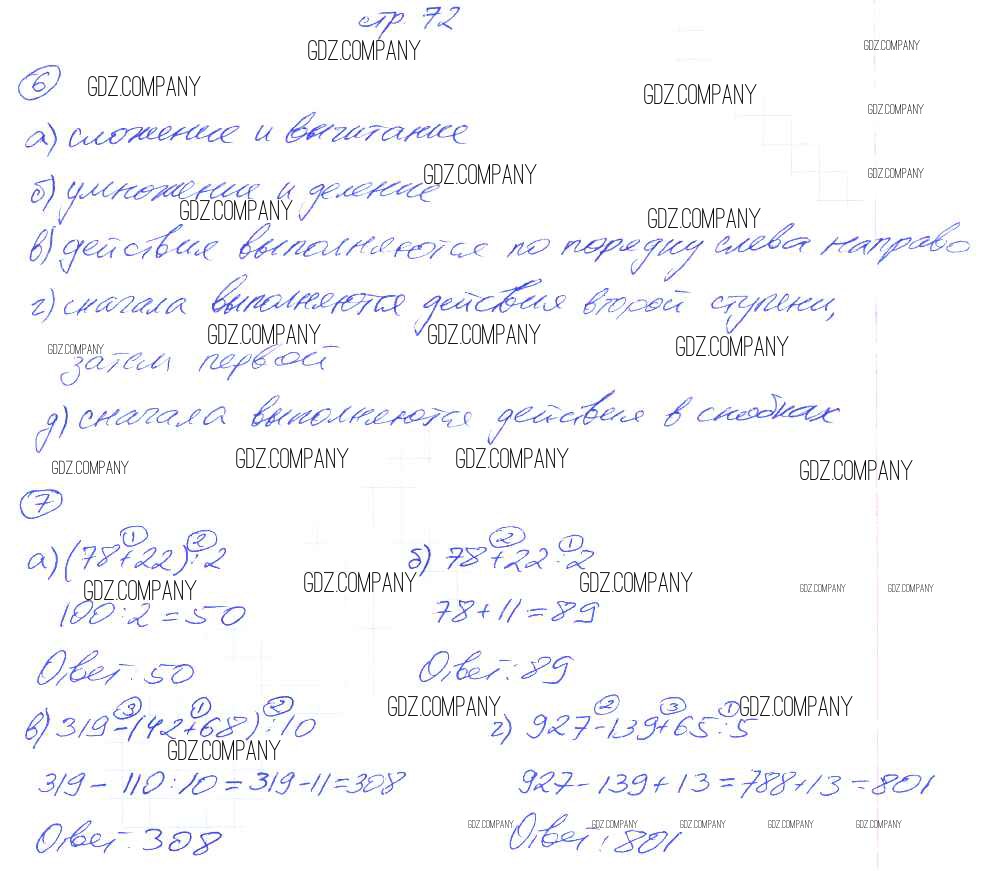 стр. 72
GDZ.COMPANY GDZ.COMPANY
6 GDZ.COMPANY GDZ.COMPANY
GDZ.COMPANY
а) сложение и вычитание
GDZ.COMPANY GDZ.COMPANY
б) умножение и деление
GDZ.COMPANY GDZ.COMPANY
в) действия выполняются по порядку слева направо
г) сначала выполняются действия второй ступени,
GDZ.COMPANY GDZ.COMPANY GDZ.COMPANY GDZ.COMPANY
затем первой
д) сначала выполняются действия в скобках
GDZ.COMPANY GDZ.COMPANY GDZ.COMPANY GDZ.COMPANY
7
1 2 2 1
а) (78+22):2 б) 78+22:2
GDZ.COMPANY GDZ.COMPANY GDZ.COMPANY GDZ.COMPANY GDZ.COMPANY
100:2=50 78+11=89
Ответ: 50 Ответ: 89
3 1 2 GDZ.COMPANY 2 3 1 GDZ.COMPANY
в) 319-(42+68):10 г) 927-139+65:5
GDZ.COMPANY
319-110:10=319-11=308 927-139+13=788+13=801
GDZ.COMPANY GDZ.COMPANY GDZ.COMPANY GDZ.COMPANY GDZ.COMPANY
Ответ: 308 Ответ: 801